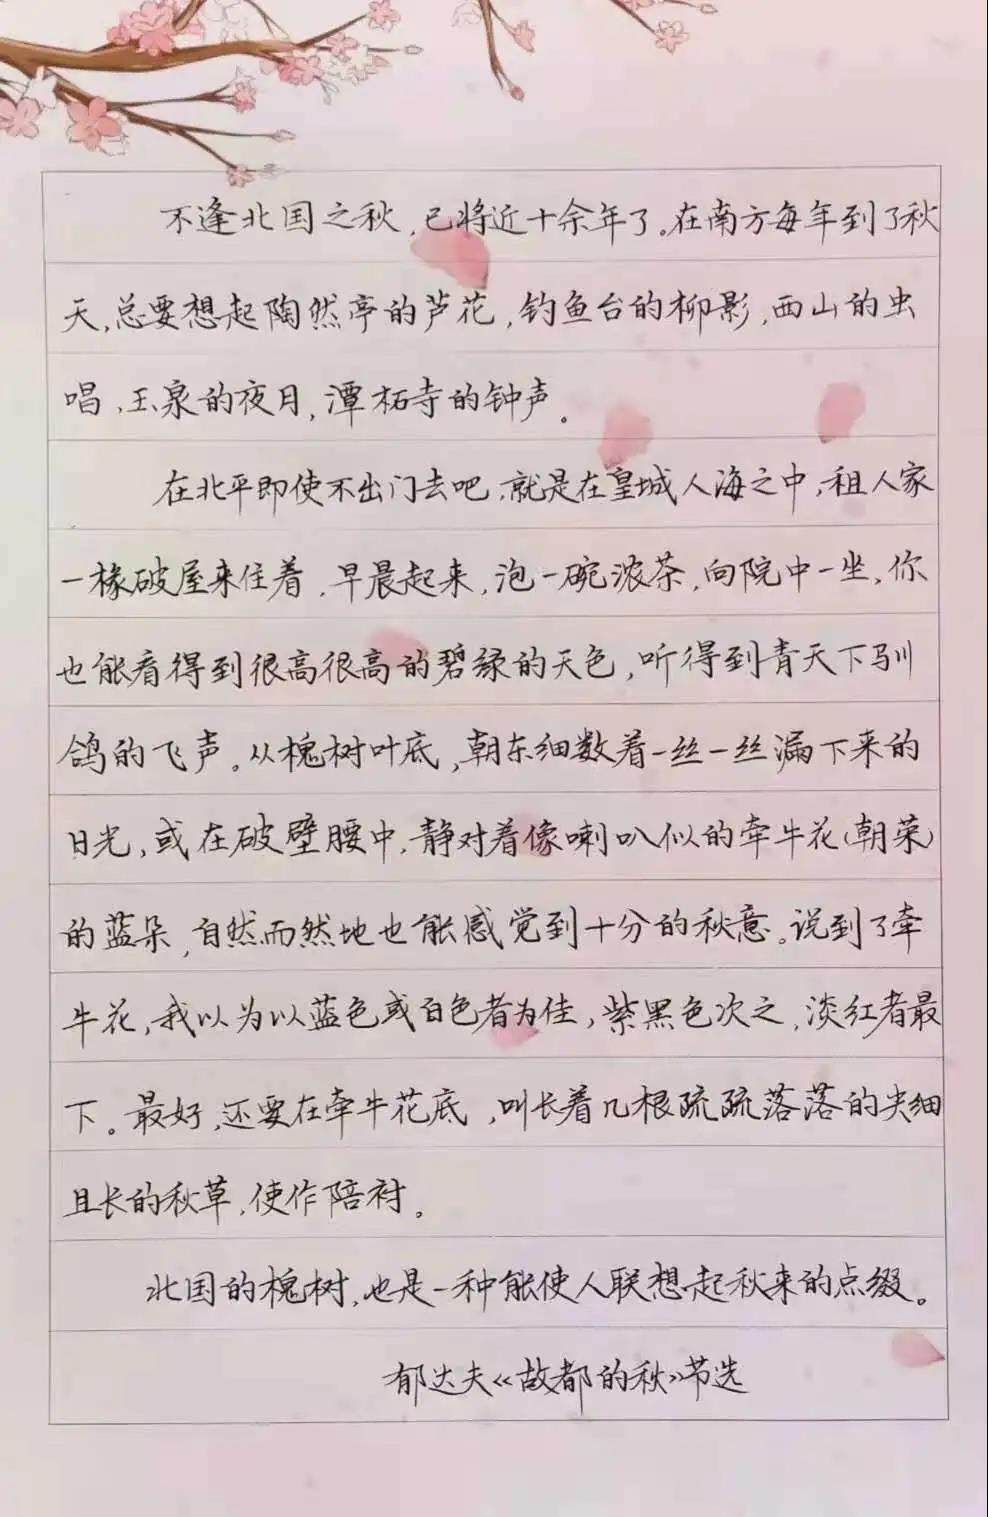 不逢北国之秋,已将近十余年了。在南方每年到了秋
天,总要想起陶然亭的芦花,钓鱼台的柳影,西山的虫
唱,玉泉的夜月,潭柘寺的钟声。
在北平即使不出门去吧,就是在皇城人海之中,租人家
一椽破屋来住着,早晨起来,泡一碗浓茶,向院中一坐,你
也能看得到很高很高的碧绿的天色,听得到青天下驯
鸽的飞声。从槐树叶底,朝东细数着一丝一丝漏下来的
日光,或在破壁腰中,静对着像喇叭似的牵牛花(朝荣)
的蓝朵,自然而然地也能感觉到十分的秋意。说到了牵
牛花,我以为以蓝色或白色者为佳,紫黑色次之,淡红者最
下。最好,还要在牵牛花底,叫长着几根疏疏落落的尖细
且长的秋草,使作陪衬。
北国的槐树,也是一种能使人联想起秋来的点缀。
郁达夫《故都的秋》节选